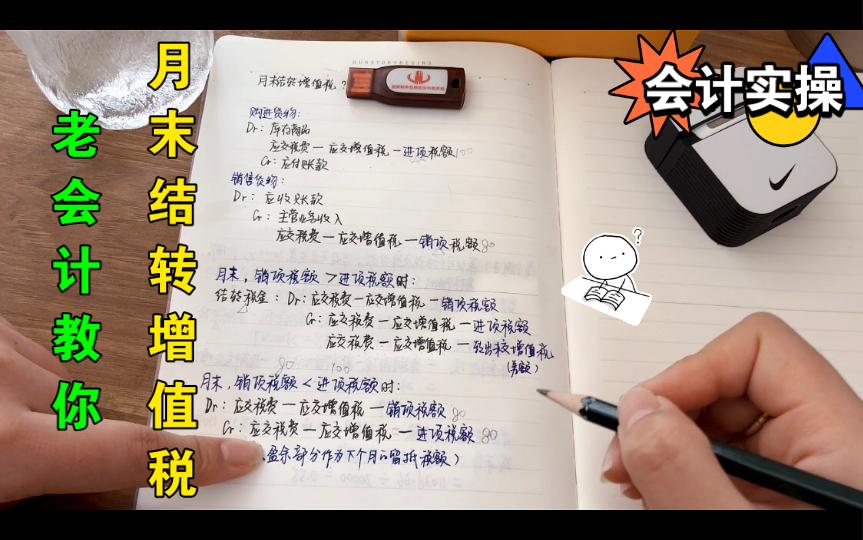 月末结转增值税
老会计教你
会计实操
?
月末结转增值税?
购进货物:
Dr: 库存商品
应交税费一应交增值税一进项税额100
Cr: 应付账款
销售货物:
Dr: 应收账款
Cr: 主营业务收入
应交税费一应交增值税一销项税额80
月末,销项税额>进项税额时:
结转税金: Dr: 应交税费一应交增值税一销项税额
Cr: 应交税费一应交增值税一进项税额
应交税费一应交增值税一转出未交增值税
(差额)
80 100
月末,销项税额<进项税额时:
Dr: 应交税费一应交增值税一销项税额80
Cr: 应交税费一应交增值税一进项税额80
盈余部分作为下个月的留抵税额)